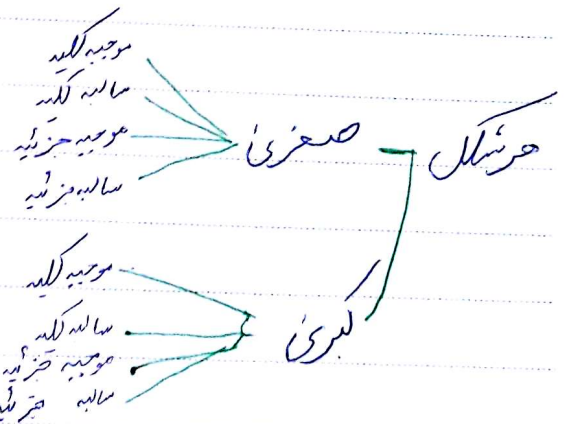 هر شکل
صغری
موجبه کلیه
سالبه کلیه
موجبه جزئیه
سالبه جزئیه
کبری
موجبه کلیه
سالبه کلیه
موجبه جزئیه
سالبه جزئیه